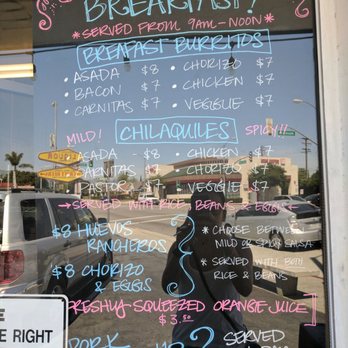 BREAKFAST!
*SERVED FROM 9am-NOON*
BREAFAST BURRITOS
• ASADA $8 • CHORIZO $7
• BACON $7 • CHICKEN $7
• CARNITAS $7 • VEGGIE $7
MILD! CHILAQUILES SPICY!!
ASADA - $8 • CHICKEN - $7
CARNITAS $7 CHORIZO $7
PASTOR $7 • VEGGIE $7
→ SERVED WITH RICE BEANS & EGGS ←
$8 HUEVOS RANCHEROS
* CHOOSE BETWEEN MILD OR SPICY SALSA
$8 CHORIZO & EGGS
* SERVED WITH BOTH RICE & BEANS
FRESHLY-SQUEEZED ORANGE JUICE
$3.50
PORK
SERVED
E RIGHT